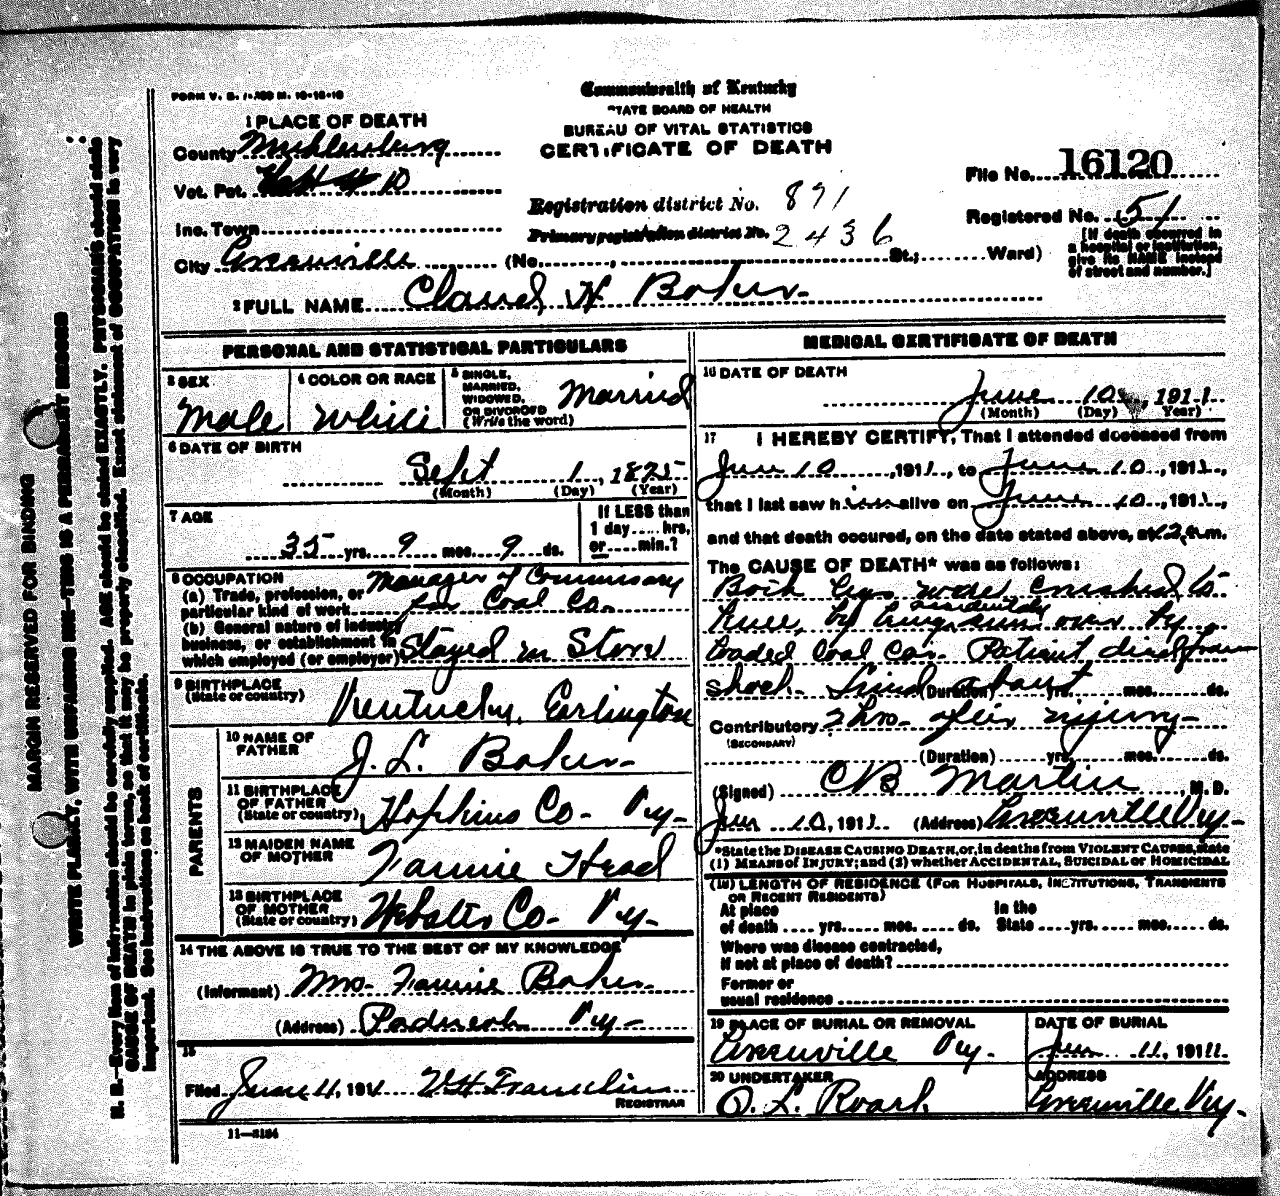 FORM V. S. 1-
Commonwealth of Kentucky
STATE BOARD OF HEALTH
BUREAU OF VITAL STATISTICS
CERTIFICATE OF DEATH
1 PLACE OF DEATH
County Muhlenburg
Vot. Pct. 10
Inc. Town
City Greenville (No. , St.; Ward)
Registration district No. 871
Primary registration district No. 2436
File No. 16120
Registered No. 51
[If death occurred in
a hospital or institution,
give its NAME instead
of street and number.]
2 FULL NAME Claud H Baker
PERSONAL AND STATISTICAL PARTICULARS
3 SEX
Male
4 COLOR OR RACE
White
5 SINGLE,
MARRIED,
WIDOWED,
OR DIVORCED
(Write the word)
Married
6 DATE OF BIRTH
Sept 1, 1875
(Month) (Day) (Year)
7 AGE
35 yrs. 9 mos. 9 ds.
If LESS than
1 day .... hrs,
or .... min.?
8 OCCUPATION
(a) Trade, profession, or
particular kind of work
Manager of Commissary
for Coal Co.
(b) General nature of industry,
business, or establishment in
which employed (or employer)
Stayed in Store
9 BIRTHPLACE
(State or country)
Kentucky, Earlington
PARENTS
10 NAME OF
FATHER
J. L. Baker
11 BIRTHPLACE
OF FATHER
(State or country)
Hopkins Co Ky
12 MAIDEN NAME
OF MOTHER
Fannie Head
13 BIRTHPLACE
OF MOTHER
(State or country)
Webster Co Ky
14 THE ABOVE IS TRUE TO THE BEST OF MY KNOWLEDGE
(Informant) Mrs. Fannie Baker
(Address) Paducah Ky
15
Filed June 11, 1911
REGISTRAR
11—3184
MEDICAL CERTIFICATE OF DEATH
16 DATE OF DEATH
June 10, 1911
(Month) (Day) Year)
17 I HEREBY CERTIFY, That I attended deceased from
Jun 10, 1911, to June 10, 1911,
that I last saw him alive on June 10, 1911,
and that death occured, on the date stated above, at 12 m.
The CAUSE OF DEATH* was as follows:
Both legs were crushed to
knee, by being accidentally run over by
loaded coal car. Patient died from
shock. Lived about
(Duration) yrs. mos. ds.
Contributory 2 hrs. after injury
(SECONDARY)
(Duration) yrs. mos. ds.
(Signed) CB Martin, M. D.
Jun 10, 1911 (Address) Greenville Ky
*State the DISEASE CAUSING DEATH, or, in deaths from VIOLENT CAUSES, state
(1) MEANS OF INJURY; and (2) whether ACCIDENTAL, SUICIDAL or HOMICIDAL
(18) LENGTH OF RESIDENCE (FOR HOSPITALS, INSTITUTIONS, TRANSIENTS
OR RECENT RESIDENTS)
At place
of death .... yrs. mos. ds.
In the
State .... yrs. mos. ds.
Where was disease contracted,
if not at place of death?
Former or
usual residence
19 PLACE OF BURIAL OR REMOVAL
Greenville Ky.
DATE OF BURIAL
Jun 11, 1911
20 UNDERTAKER
O. L. Roark
ADDRESS
Greenville Ky.
MARGIN RESERVED FOR BINDING
WRITE PLAINLY, WITH UNFADING INK—THIS IS A PERMANENT RECORD
N. B.—Every item of information should be carefully supplied. AGE should be stated EXACTLY. PHYSICIANS should state
CAUSE OF DEATH in plain terms, so that it may be properly classified. Exact statement of OCCUPATION is very
important. See instructions on back of certificate.